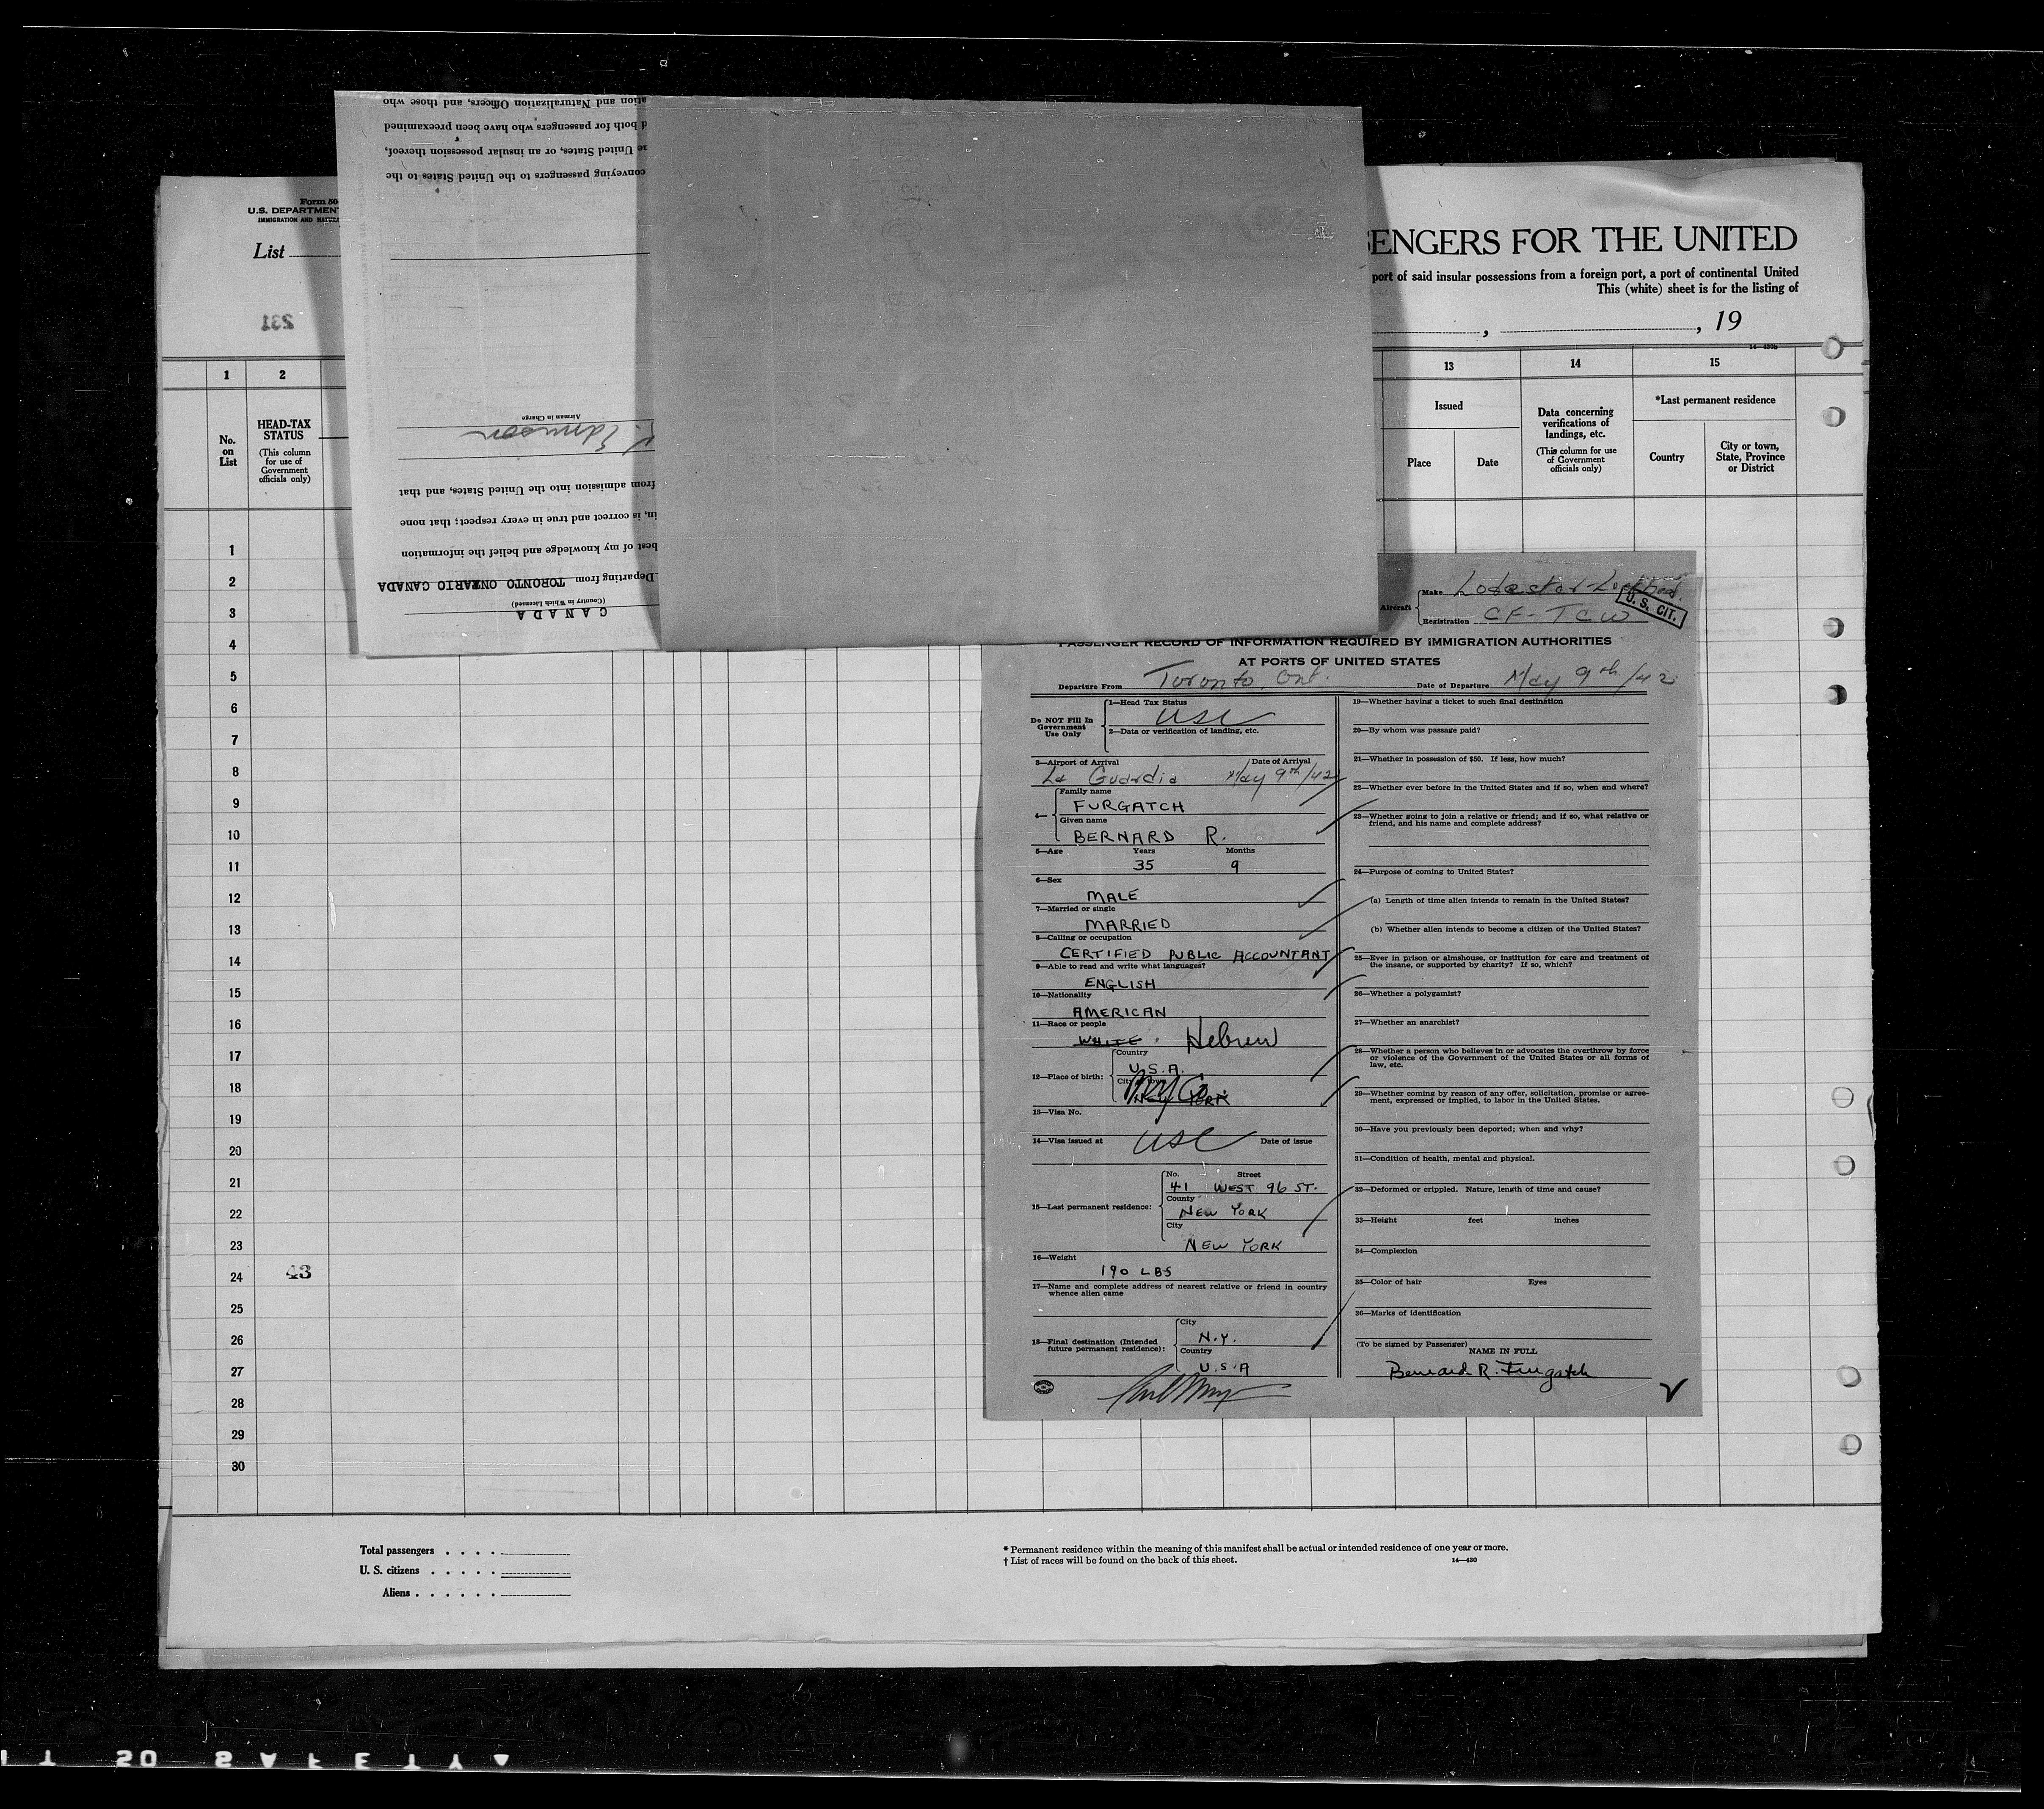 Form 50
U.S. DEPARTMENT
IMMIGRATION AND
List
231
conveying passengers to the United States to the
United States, or an insular possession thereof,
both for passengers who have been preexamined
and Naturalization Officers, and those who
CANADA
(Country in Which Licensed)
Departing from TORONTO ONTARIO CANADA
best of my knowledge and belief the information
in, is correct and true in every respect; that none
from admission into the United States, and that
Edmison
Airman in Charge
ENGERS FOR THE UNITED
port of said insular possessions from a foreign port, a port of continental United
This (white) sheet is for the listing of
, , 19
1 2 13 14 15
No. on List
HEAD-TAX STATUS
(This column for use of Government officials only)
Issued
Place Date
Data concerning verifications of landings, etc.
(This column for use of Government officials only)
*Last permanent residence
Country
City or town, State, Province or District
1
2
3
4
5
6
7
8
9
10
11
12
13
14
15
16
17
18
19
20
21
22
23
24 43
25
26
27
28
29
30
Aircraft
Make Lodestar-Lockheed.
Registration CF-TCW
U. S. CIT.
PASSENGER RECORD OF INFORMATION REQUIRED BY IMMIGRATION AUTHORITIES
AT PORTS OF UNITED STATES
Departure From Toronto, Ont. Date of Departure May 9th/42
Do NOT Fill In Government Use Only
1—Head Tax Status
USC
2—Data or verification of landing, etc.
3—Airport of Arrival Date of Arrival
La Guardia May 9th/42
4—
Family name
FURGATCH
Given name
BERNARD R.
5—Age Years Months
35 9
6—Sex
MALE
7—Married or single
MARRIED
8—Calling or occupation
CERTIFIED PUBLIC ACCOUNTANT
9—Able to read and write what languages?
ENGLISH
10—Nationality
AMERICAN
11—Race or people
WHITE. Hebrew
12—Place of birth:
Country
U.S.A.
NEW YORK
13—Visa No.
14—Visa issued at USC Date of issue
15—Last permanent residence:
No. Street
41 WEST 96 ST.
County
NEW YORK
City
NEW YORK
16—Weight
190 LBS
17—Name and complete address of nearest relative or friend in country
whence alien came
18—Final destination (Intended future permanent residence):
City
N.Y.
Country
U.S.A
19—Whether having a ticket to such final destination
20—By whom was passage paid?
21—Whether in possession of $50. If less, how much?
22—Whether ever before in the United States and if so, when and where?
23—Whether going to join a relative or friend; and if so, what relative or
friend, and his name and complete address?
24—Purpose of coming to United States?
(a) Length of time alien intends to remain in the United States?
(b) Whether alien intends to become a citizen of the United States?
25—Ever in prison or almshouse, or institution for care and treatment of
the insane, or supported by charity? If so, which?
26—Whether a polygamist?
27—Whether an anarchist?
28—Whether a person who believes in or advocates the overthrow by force
or violence of the Government of the United States or all forms of
law, etc.
29—Whether coming by reason of any offer, solicitation, promise or agree-
ment, expressed or implied, to labor in the United States.
30—Have you previously been deported; when and why?
31—Condition of health, mental and physical.
32—Deformed or crippled. Nature, length of time and cause?
33—Height feet inches
34—Complexion
35—Color of hair Eyes
36—Marks of identification
(To be signed by Passenger)
NAME IN FULL
Bernard R. Furgatch
Total passengers . . . .
U. S. citizens . . . . .
Aliens . . . . . .
* Permanent residence within the meaning of this manifest shall be actual or intended residence of one year or more.
† List of races will be found on the back of this sheet.
14—430
SAFETY